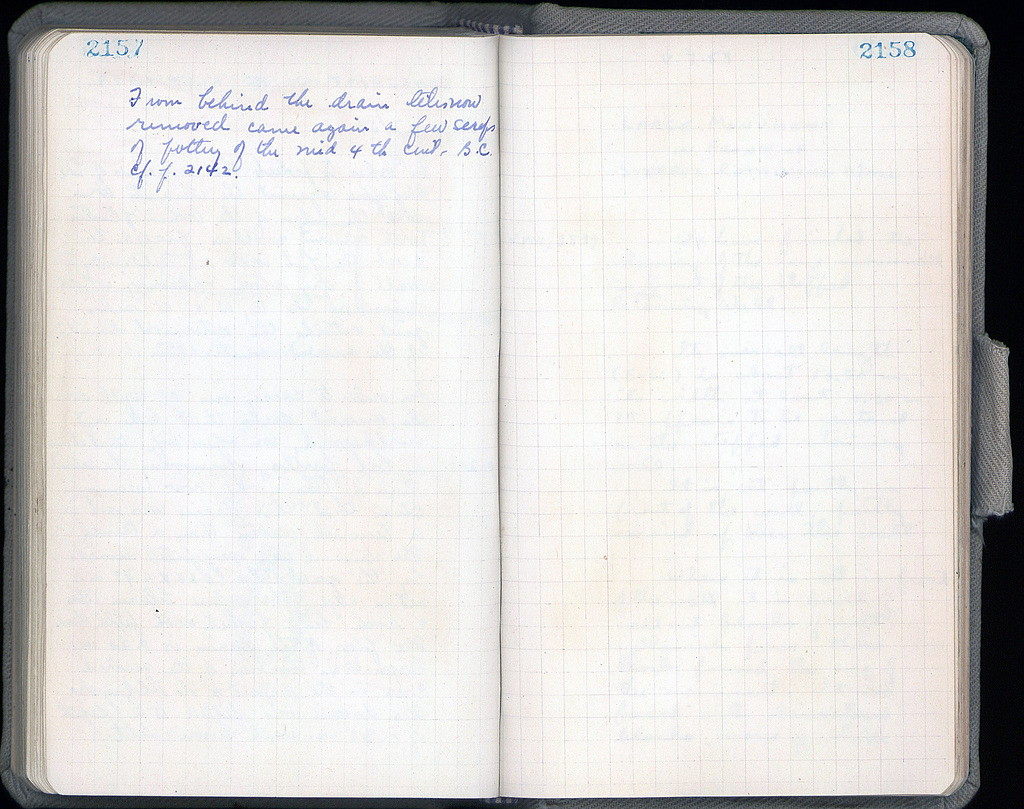 2157
From behind the drain tiles now
removed came again a few scraps
of pottery of the mid 4 th cent. B.C.
cf. p. 2142.
2158